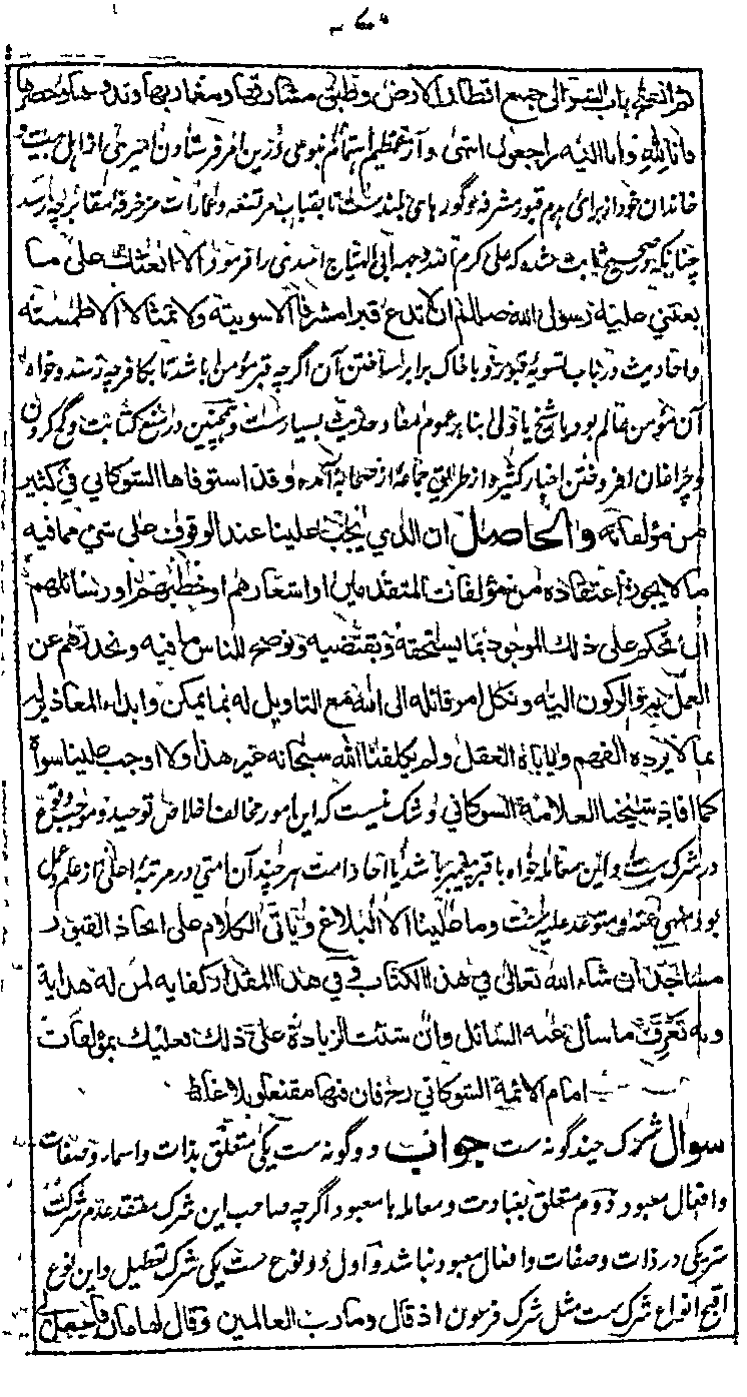 ثم التحق باب الشر الى جميع اقطار الارض وطبق مشارقها ومغاربها وبدوها وحضرها
فانا لله وانا اليه راجعون انتهى و از عظیم اهتمام نبوی درین امر فرستادن امیری از اهل بیت و
خاندان خود از برای هدم قبور مشرفه و گورهای بلند ست تا بقباب مرتفعه و عمارات مزخرفه مقابر چه رسد
چنانکه در صحیح ثابت شده که علی کرم الله وجهه ابی الهیاج اسدی را فرمود الا ابعثك على ما
بعثني عليه رسول الله صللم ان لا تدع قبرا مشرفا الا سويته ولا تمثالا الا طمسته
و احادیث در باب تسویهٔ قبور و با خاک برابر ساختن آن اگرچه قبر مؤمن باشد تا بکافر چه رسد و خواه
آن مؤمن عالم بود یا شیخ یا ولی بنا بر عموم مفاد حدیث بسیار ست و همچنین در منع کتابت و گچ کردن
و چراغان افروختن اخبار کثیره از طریق جماعهٔ از صحابه آمده وقد استوفاها الشوكاني في كثير
من مؤلفاته والحاصل ان الذي يجب علينا عند الوقوف على شيء مما فيه
ما لا يجوز اعتقاده من مؤلفات المتقدمين او اشعارهم او خطبهم او رسائلهم
ان نحكم على ذلك الموجود بما يستحقه ويقتضيه ونوضح للناس ما فيه ونحذرهم عن
العمل به والركون اليه ونكل امر قائله الى الله مع التاويل له بما يمكن وابداء المعاذير له
بما لا يرده الفهم ولا ياباه العقل ولم يكلفنا الله سبحانه غير هذا ولا اوجب علينا سواه
كما افاده شيخنا العلامة الشوكاني و شک نیست که این امور مخالف اخلاص توحید و موجب وقوع
در شرک ست و این معامله خواه با قبر پیغمبر باشد یا آحاد امت هر چند آن امتی در مرتبهٔ اعلی از علم و عمل
بود منهی عنه و متوعد علیه ست وما علينا الا البلاغ وياتى الكلام على اتخاذ القبور
مساجد ان شاء الله تعالى في هذا الكتاب وفي هذا المقدار كفاية لمن له هداية
وبه تعرف ما سأل عنه السائل وان شئت الزيادة على ذلك فعليك بمؤلفات
امام الائمة الشوكاني رح فان فيها مقنعا وبلاغا
سوال شرک چند گونه ست جواب دو گونه ست یکی متعلق بذات و اسماء و صفات
و افعال معبود دوم متعلق بعبادت و معامله با معبود اگرچه صاحب این شرک معتقد عدم شرکت
شریکی در ذات و صفات و افعال معبود نباشد و اول دو نوع ست یکی شرک تعطیل و این نوع
اقبح انواع شرک ست مثل شرک فرعون اذ قال وما رب العالمين وقال لهامان